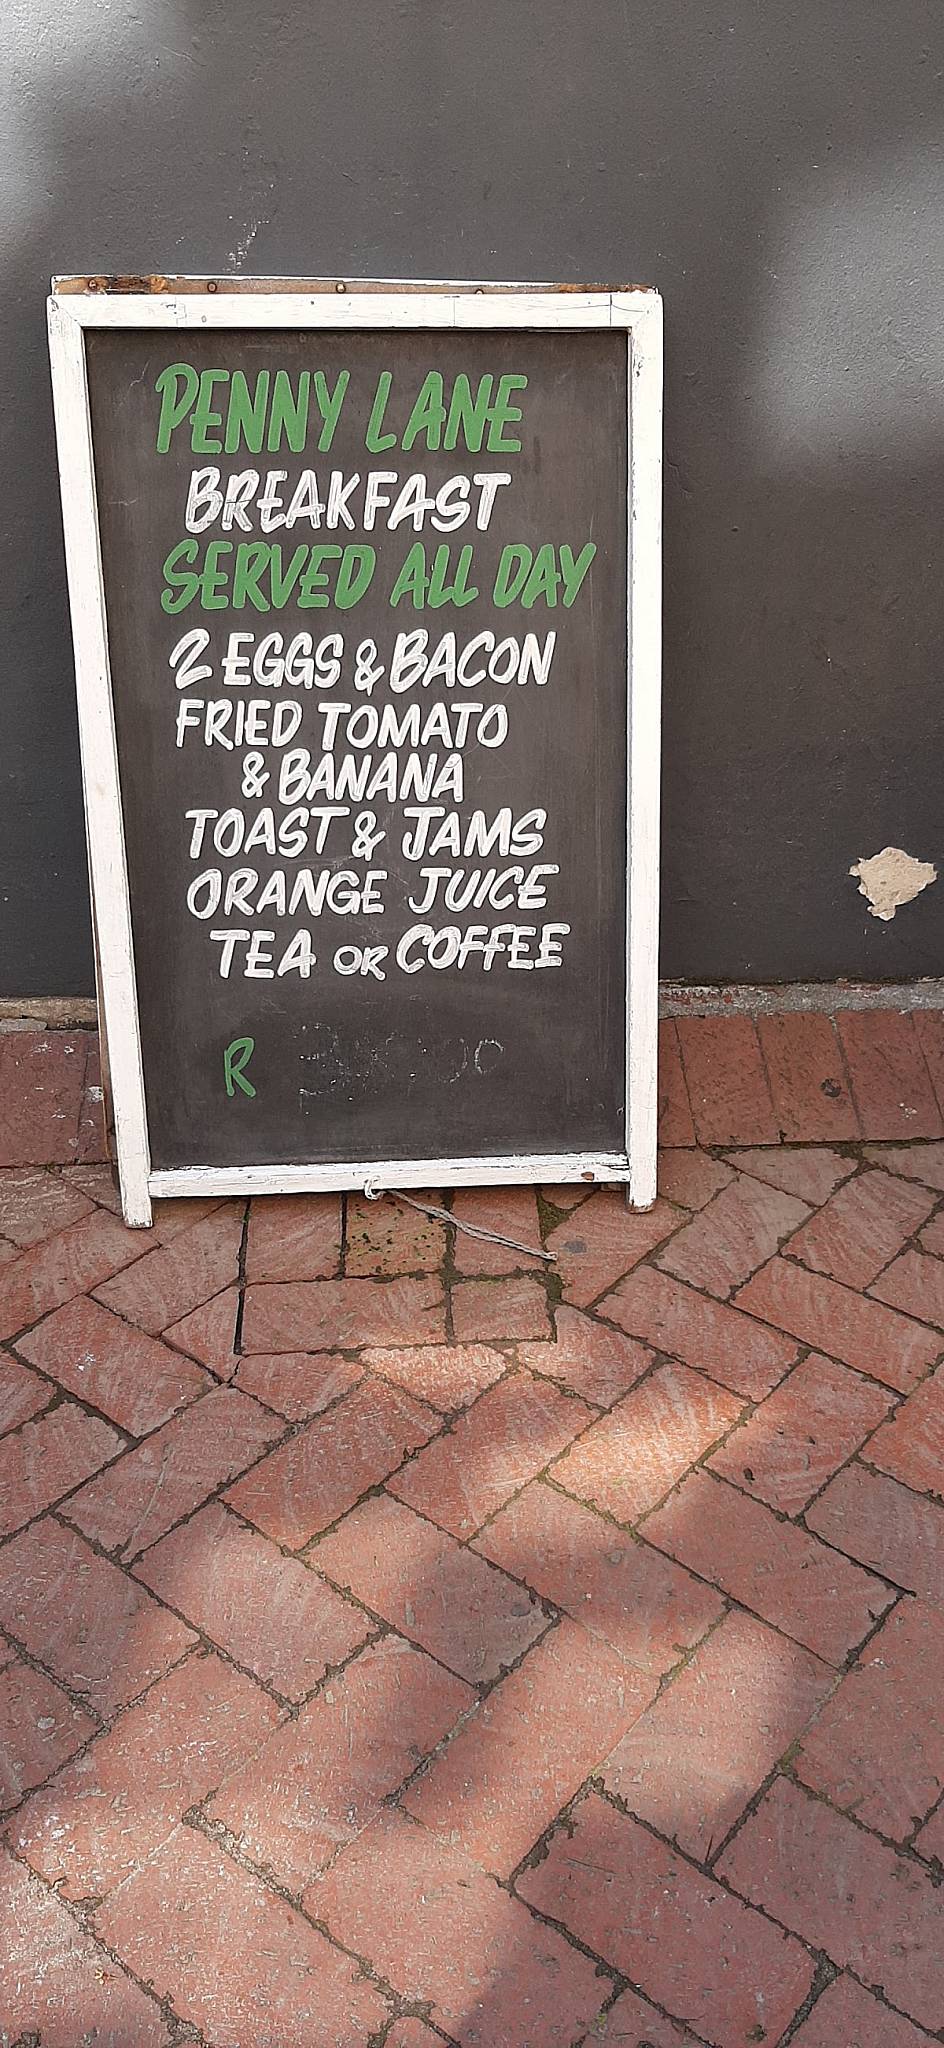 PENNY LANE
BREAKFAST
SERVED ALL DAY
2 EGGS & BACON
FRIED TOMATO
& BANANA
TOAST & JAMS
ORANGE JUICE
TEA OR COFFEE
R